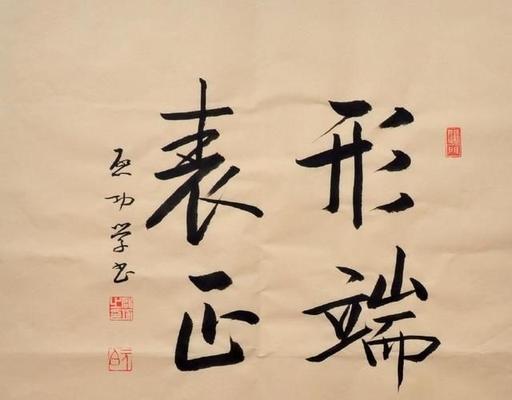 形端
表正
启功学书
元白